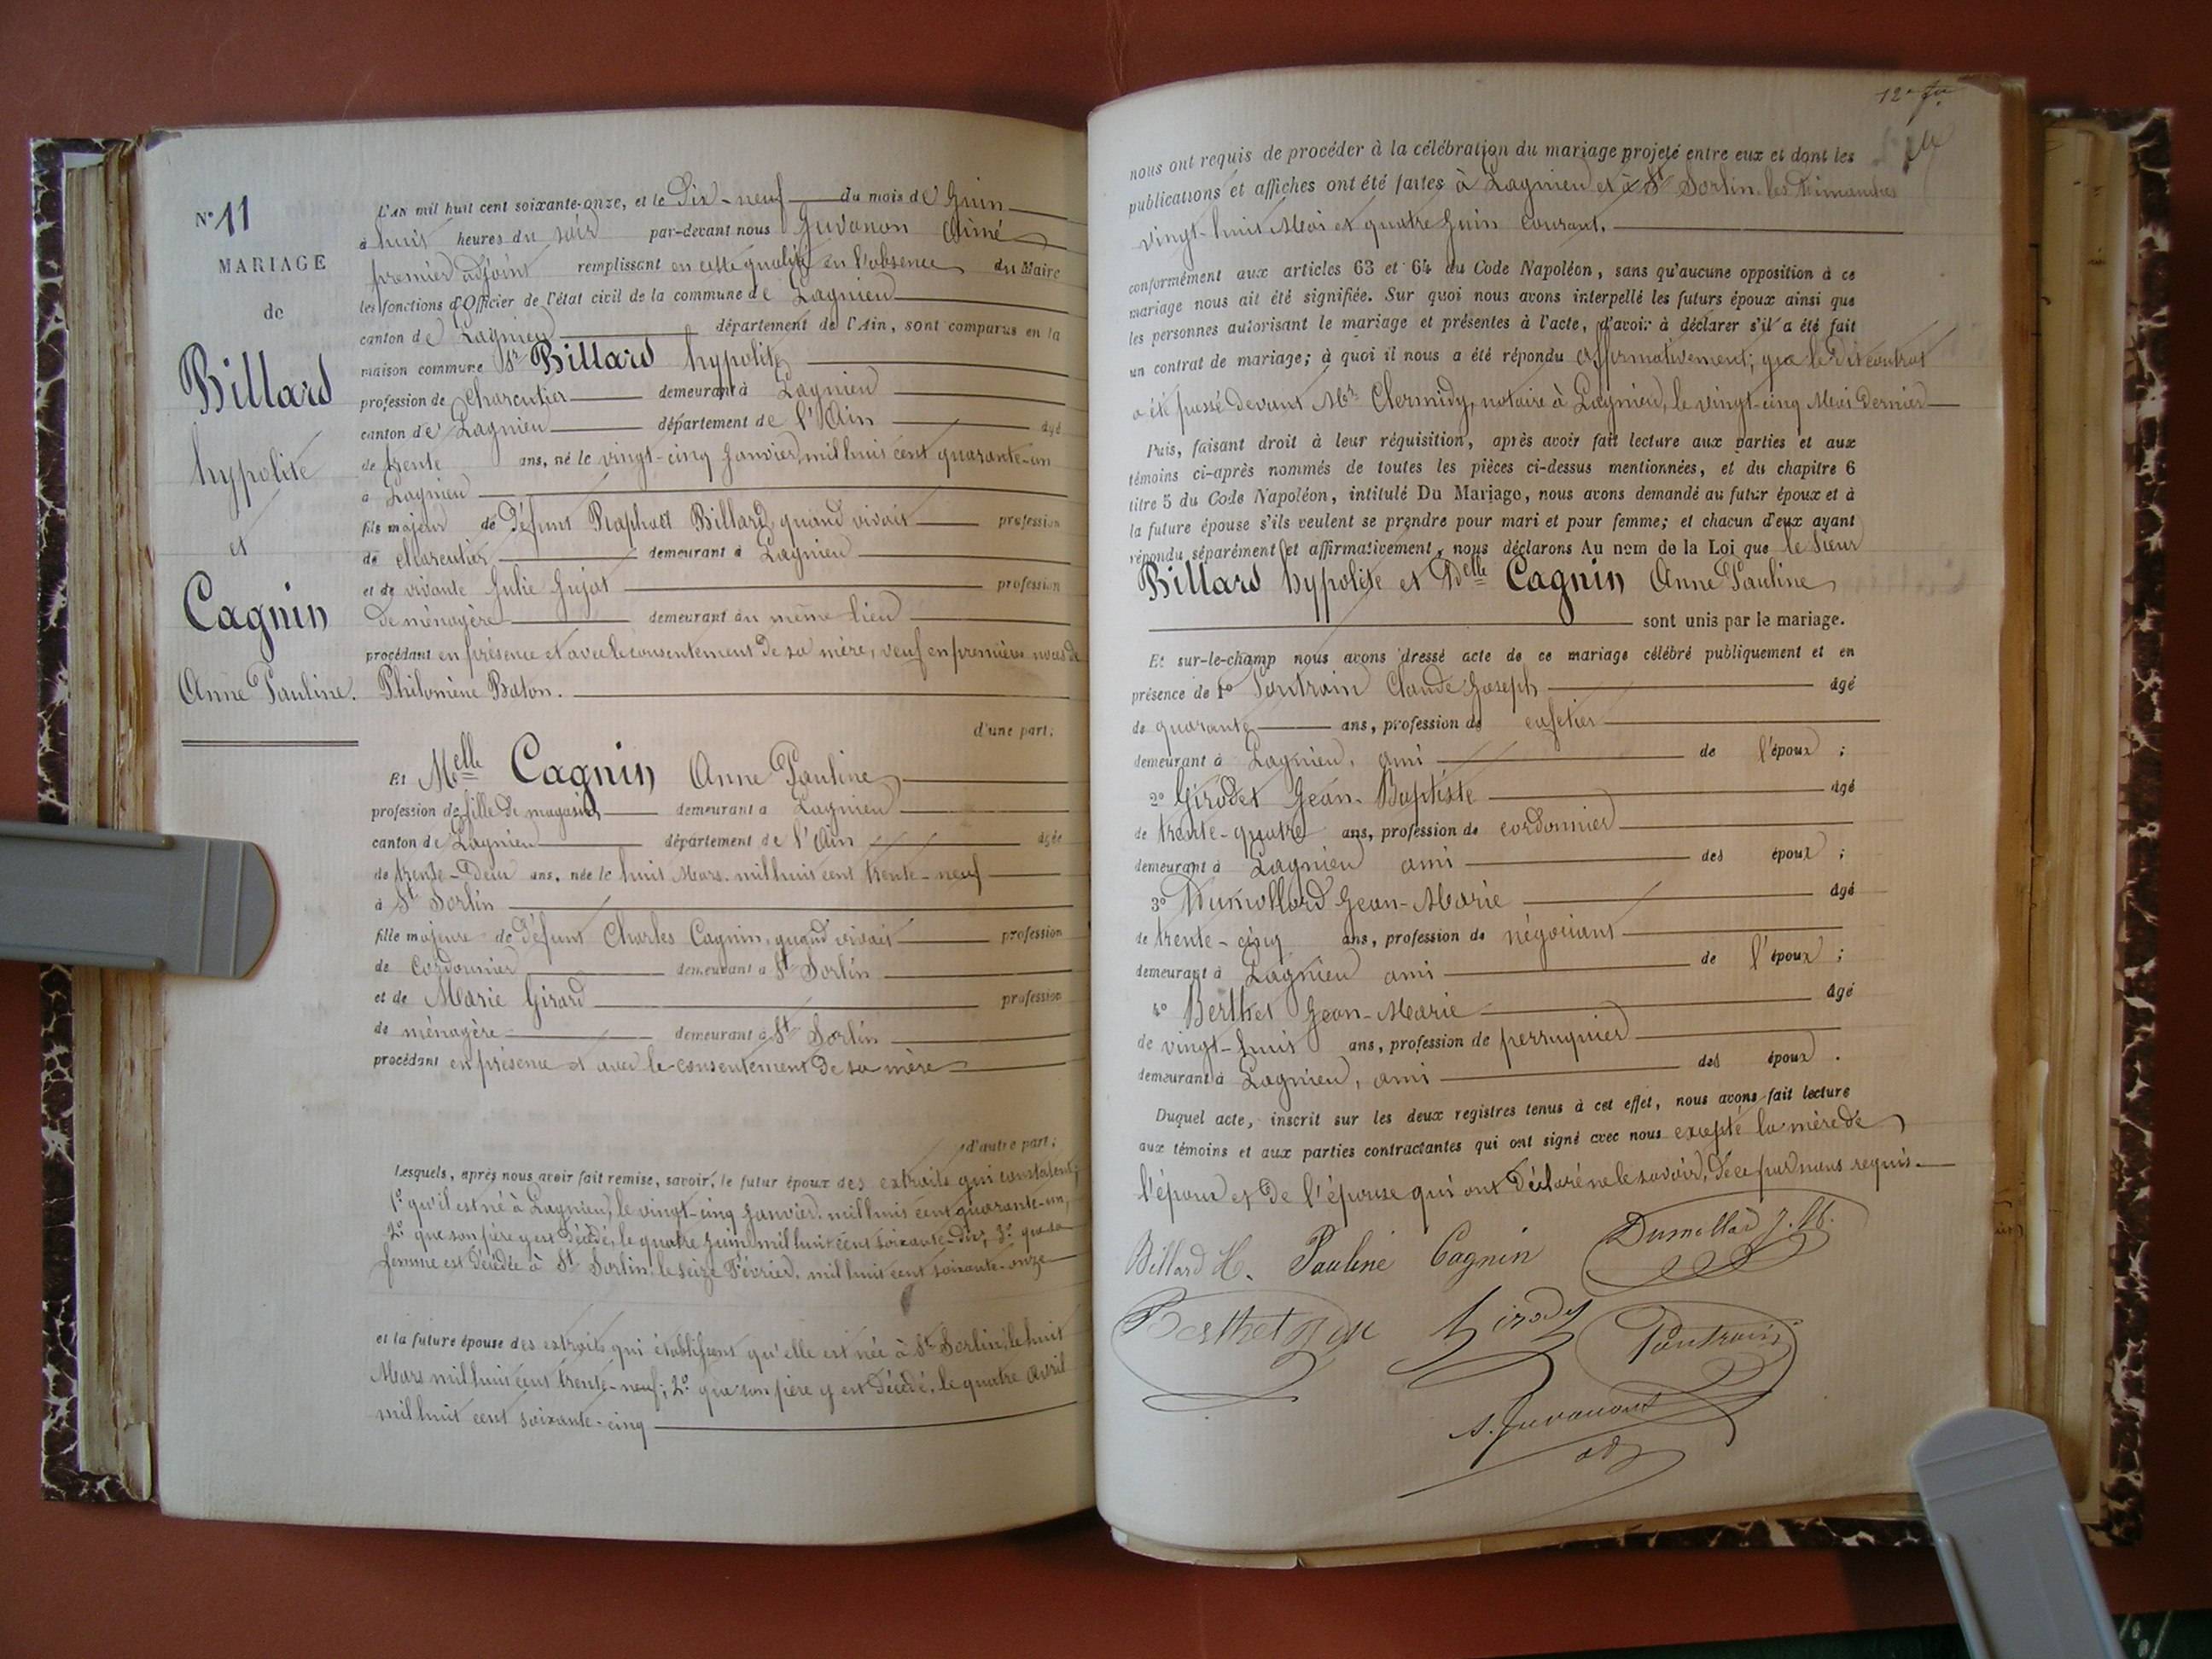 N° 11
MARIAGE
de
Billard
hypolite
et
Cagnin
Anne Pauline.
L'AN mil huit cent soixante-onze, et le Dix-neuf du mois de Juin
à huit heures du soir par-devant nous Juvanon Aimé
premier adjoint remplissant en cette qualité en l'absence du Maire
les fonctions d'Officier de l'état civil de la commune de Lagnieu
canton de Lagnieu département de l'Ain, sont comparus en la
maison commune Sr Billard hypolite
profession de charcutier demeurant à Lagnieu
canton de Lagnieu département de l'Ain âgé
de trente ans, né le vingt-cinq Janvier, mil huit cent quarante-un
à Lagnieu
fils majeur de défunt Raphaël Billard, quand vivait profession
de charcutier demeurant à Lagnieu
et de vivante Julie Jujat profession
de ménagère demeurant au même lieu
procédant en présence et avec le consentement de sa mère, veuf en premières noces de
Philomène Baton.
d'une part;
Et Melle Cagnin Anne Pauline
profession de fille de magasin demeurant à Lagnieu
canton de Lagnieu département de l'Ain âgée
de trente-deux ans, née le huit Mars mil huit cent trente-neuf
à St Sorlin
fille majeure de défunt Charles Cagnin, quand vivait profession
de Cordonnier demeurant à St Sorlin
et de Marie Girard profession
de ménagère demeurant à St Sorlin
procédant en présence et avec le consentement de sa mère
d'autre part;
Lesquels, après nous avoir fait remise, savoir, le futur époux des extraits qui constatent;
1° qu'il est né à Lagnieu, le vingt-cinq Janvier mil huit cent quarante-un,
2° que son père y est décédé, le quatre Juin mil huit cent soixante-dix, 3° que sa
femme est décédée à St Sorlin, le seize Février, mil huit cent soixante-onze
et la future épouse des extraits qui établissent qu'elle est née à St Sorlin, le huit
Mars mil huit cent trente-neuf; 2° que son père y est décédé, le quatre avril
mil huit cent soixante-cinq
nous ont requis de procéder à la célébration du mariage projeté entre eux et dont les
publications et affiches ont été faites à Lagnieu et à St Sorlin, les dimanches
vingt-huit Mai et quatre Juin courant.
conformément aux articles 63 et 64 du Code Napoléon, sans qu'aucune opposition à ce
mariage nous ait été signifiée. Sur quoi nous avons interpellé les futurs époux ainsi que
les personnes autorisant le mariage et présentes à l'acte, d'avoir à déclarer s'il a été fait
un contrat de mariage; à quoi il nous a été répondu affirmativement; que le dit contrat
a été passé devant Mr Chermidy, notaire à Lagnieu, le vingt-cinq Mai dernier
Puis, faisant droit à leur réquisition, après avoir fait lecture aux parties et aux
témoins ci-après nommés de toutes les pièces ci-dessus mentionnées, et du chapitre 6
titre 5 du Code Napoléon, intitulé Du Mariage, nous avons demandé au futur époux et à
la future épouse s'ils veulent se prendre pour mari et pour femme; et chacun d'eux ayant
répondu séparément et affirmativement, nous déclarons Au nom de la Loi que le Sieur
Billard hypolite et Delle Cagnin Anne Pauline
sont unis par le mariage.
Et sur-le-champ nous avons dressé acte de ce mariage célébré publiquement et en
présence de 1° Pantrain Claude Joseph âgé
de quarante ans, profession de cafetier
demeurant à Lagnieu, ami de l'époux;
2° Girodet Jean-Baptiste âgé
de trente-quatre ans, profession de cordonnier
demeurant à Lagnieu ami des époux;
3° Dumollard Jean-Marie âgé
de trente-cinq ans, profession de négociant
demeurant à Lagnieu ami de l'époux;
4° Berthet Jean-Marie âgé
de vingt-huit ans, profession de perruquier
demeurant à Lagnieu, ami des époux.
Duquel acte, inscrit sur les deux registres tenus à cet effet, nous avons fait lecture
aux témoins et aux parties contractantes qui ont signé avec nous excepté la mère de
l'époux et de l'épouse qui ont déclaré ne le savoir, de ce par nous requis.
Billard H. Pauline Cagnin Dumollard J. M.
Berthet Girodet Pantrain
A. Juvanon
adj